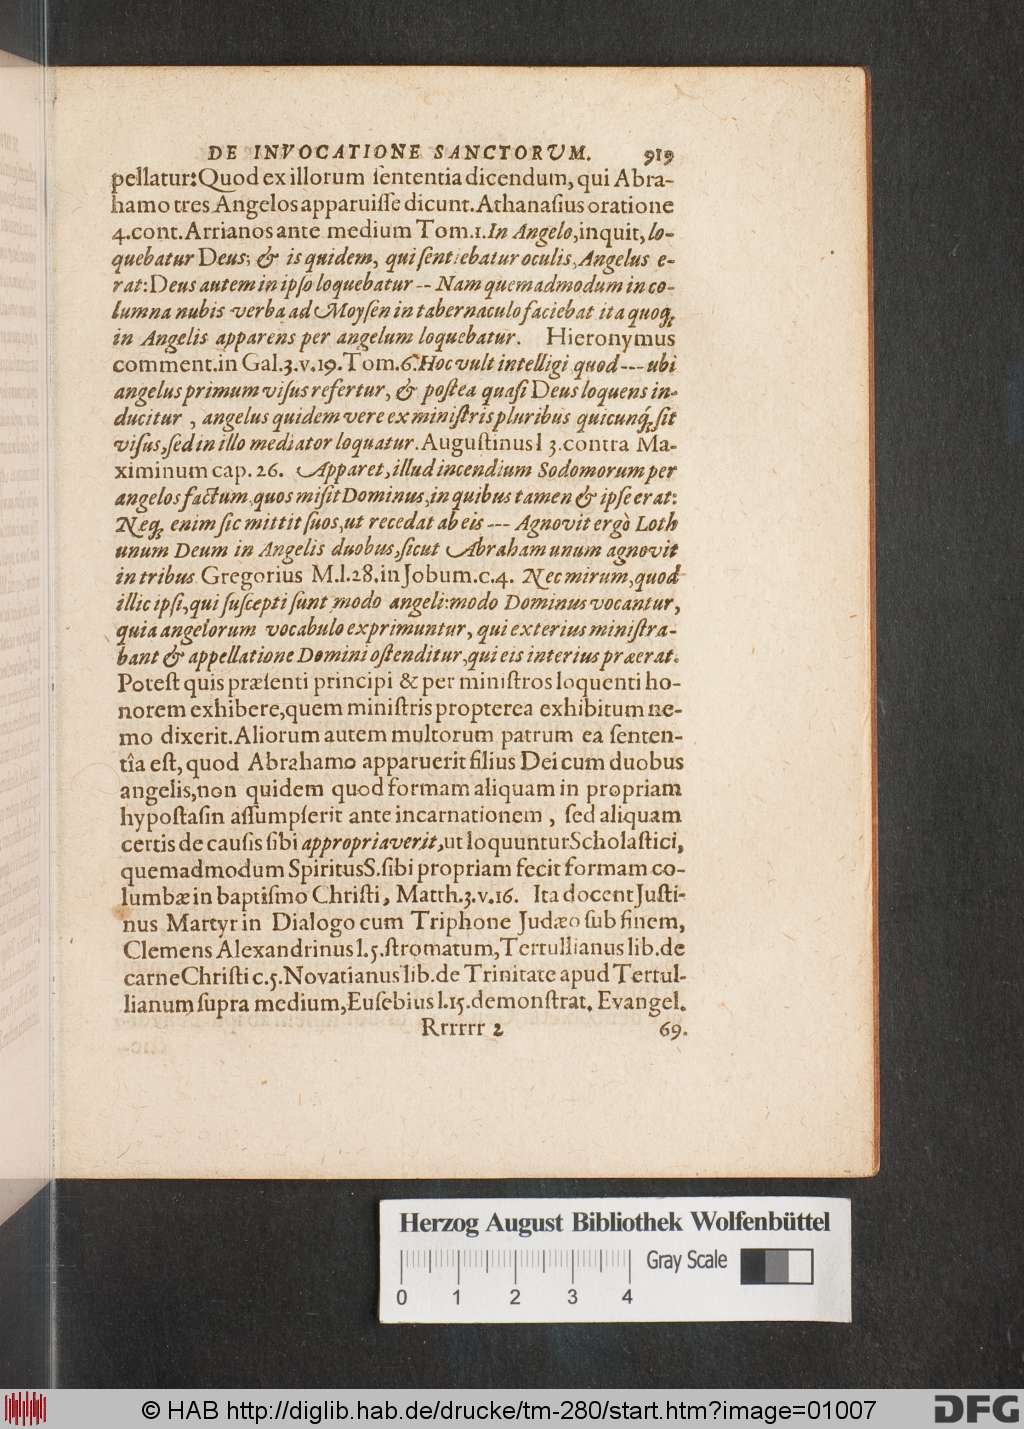 DE INVOCATIONE SANCTORUM. 919
pellatur: Quod ex illorum ſententia dicendum, qui Abra-
hamo tres Angelos apparuiſſe dicunt. Athanaſius oratione
4. cont. Arrianos ante medium Tom. 1. In Angelo, inquit, lo-
quebatur Deus; & is quidem, qui ſentiebatur oculis, Angelus e-
rat: Deus autem in ipſo loquebatur -- Nam quemadmodum in co-
lumna nubis verba ad Moyſen in tabernaculo faciebat ita quoq;
in Angelis apparens per angelum loquebatur. Hieronymus
comment. in Gal. 3. v. 19. Tom. 6. Hoc vult intelligi quod --- ubi
angelus primum viſus refertur, & poſtea quaſi Deus loquens in-
ducitur, angelus quidem vere ex miniſtris pluribus quicunq́; ſit
viſus, ſed in illo mediator loquatur. Auguſtinus l 3. contra Ma-
ximinum cap. 26. Apparet, illud incendium Sodomorum per
angelos factum, quos miſit Dominus, in quibus tamen & ipſe erat:
Neq; enim ſic mittit ſuos, ut recedat ab eis --- Agnovit ergò Loth
unum Deum in Angelis duobus, ſicut Abraham unum agnovit
in tribus Gregorius M. l. 28. in Jobum. c. 4. Nec mirum, quod
illic ipſi, qui ſuſcepti ſunt modo angeli: modo Dominus vocantur,
quia angelorum vocabulo exprimuntur, qui exterius miniſtra-
bant & appellatione Domini oſtenditur, qui eis interius præerat.
Poteſt quis præſenti principi & per miniſtros loquenti ho-
norem exhibere, quem miniſtris propterea exhibitum ne-
mo dixerit. Aliorum autem multorum patrum ea ſenten-
tîa eſt, quod Abrahamo apparuerit filius Dei cum duobus
angelis, non quidem quod formam aliquam in propriam
hypoſtaſin aſſumpſerit ante incarnationem, ſed aliquam
certis de cauſis ſibi appropriaverit, ut loquuntur Scholaſtici,
quemadmodum Spiritus S. ſibi propriam fecit formam co-
lumbæ in baptiſmo Chriſti, Matth. 3. v. 16. Ita docent Juſti-
nus Martyr in Dialogo cum Triphone Judæo ſub finem,
Clemens Alexandrinus l. 5. ſtromatum, Tertullianus lib. de
carne Chriſti c. 5. Novatianus lib. de Trinitate apud Tertul-
lianum ſupra medium, Euſebius l. 15. demonſtrat. Evangel.
Rrrrrr 2 69.
Herzog August Bibliothek Wolfenbüttel
Gray Scale
0 1 2 3 4
© HAB http://diglib.hab.de/drucke/tm-280/start.htm?image=01007
DFG